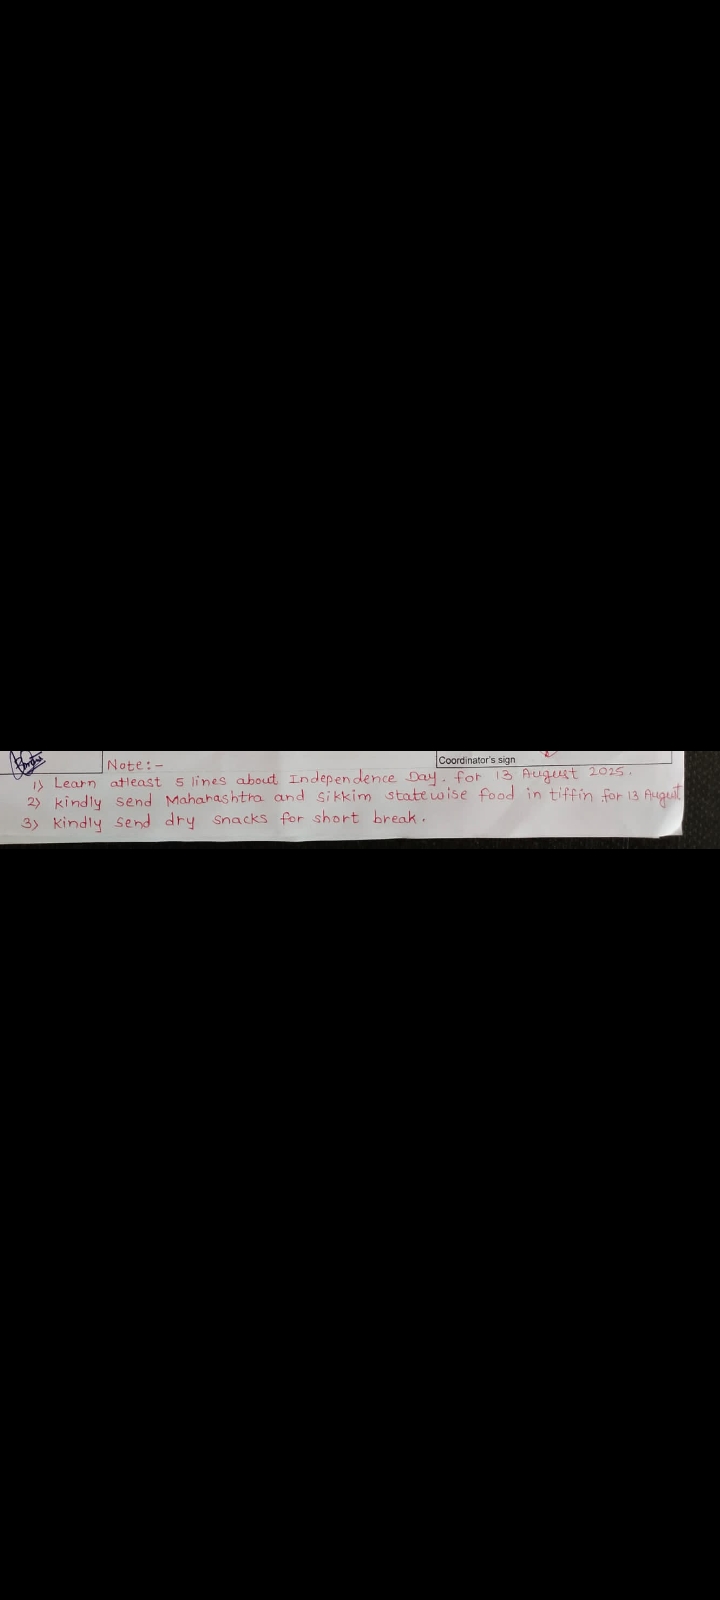 Note:-
Coordinator's sign
1) Learn atleast 5 lines about Independence Day. for 13 August 2025.
2) kindly send Maharashtra and sikkim statewise food in tiffin for 13 August
3) kindly send dry snacks for short break.